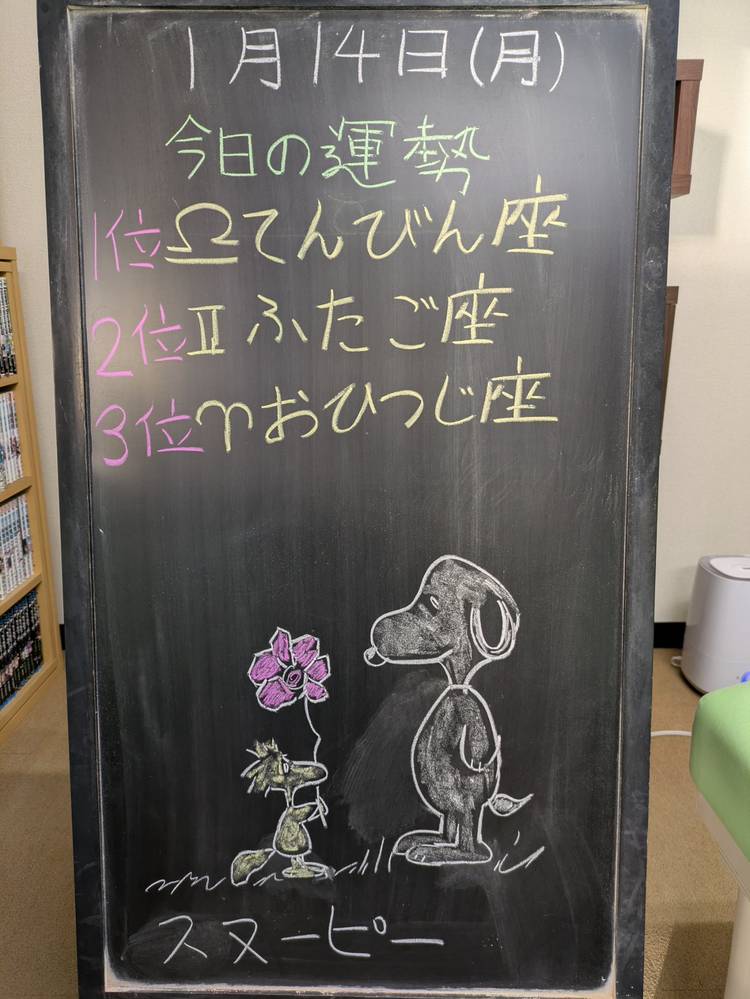 1月14日(月)
今日の運勢
1位♎てんびん座
2位♊ふたご座
3位♈おひつじ座
スヌーピー